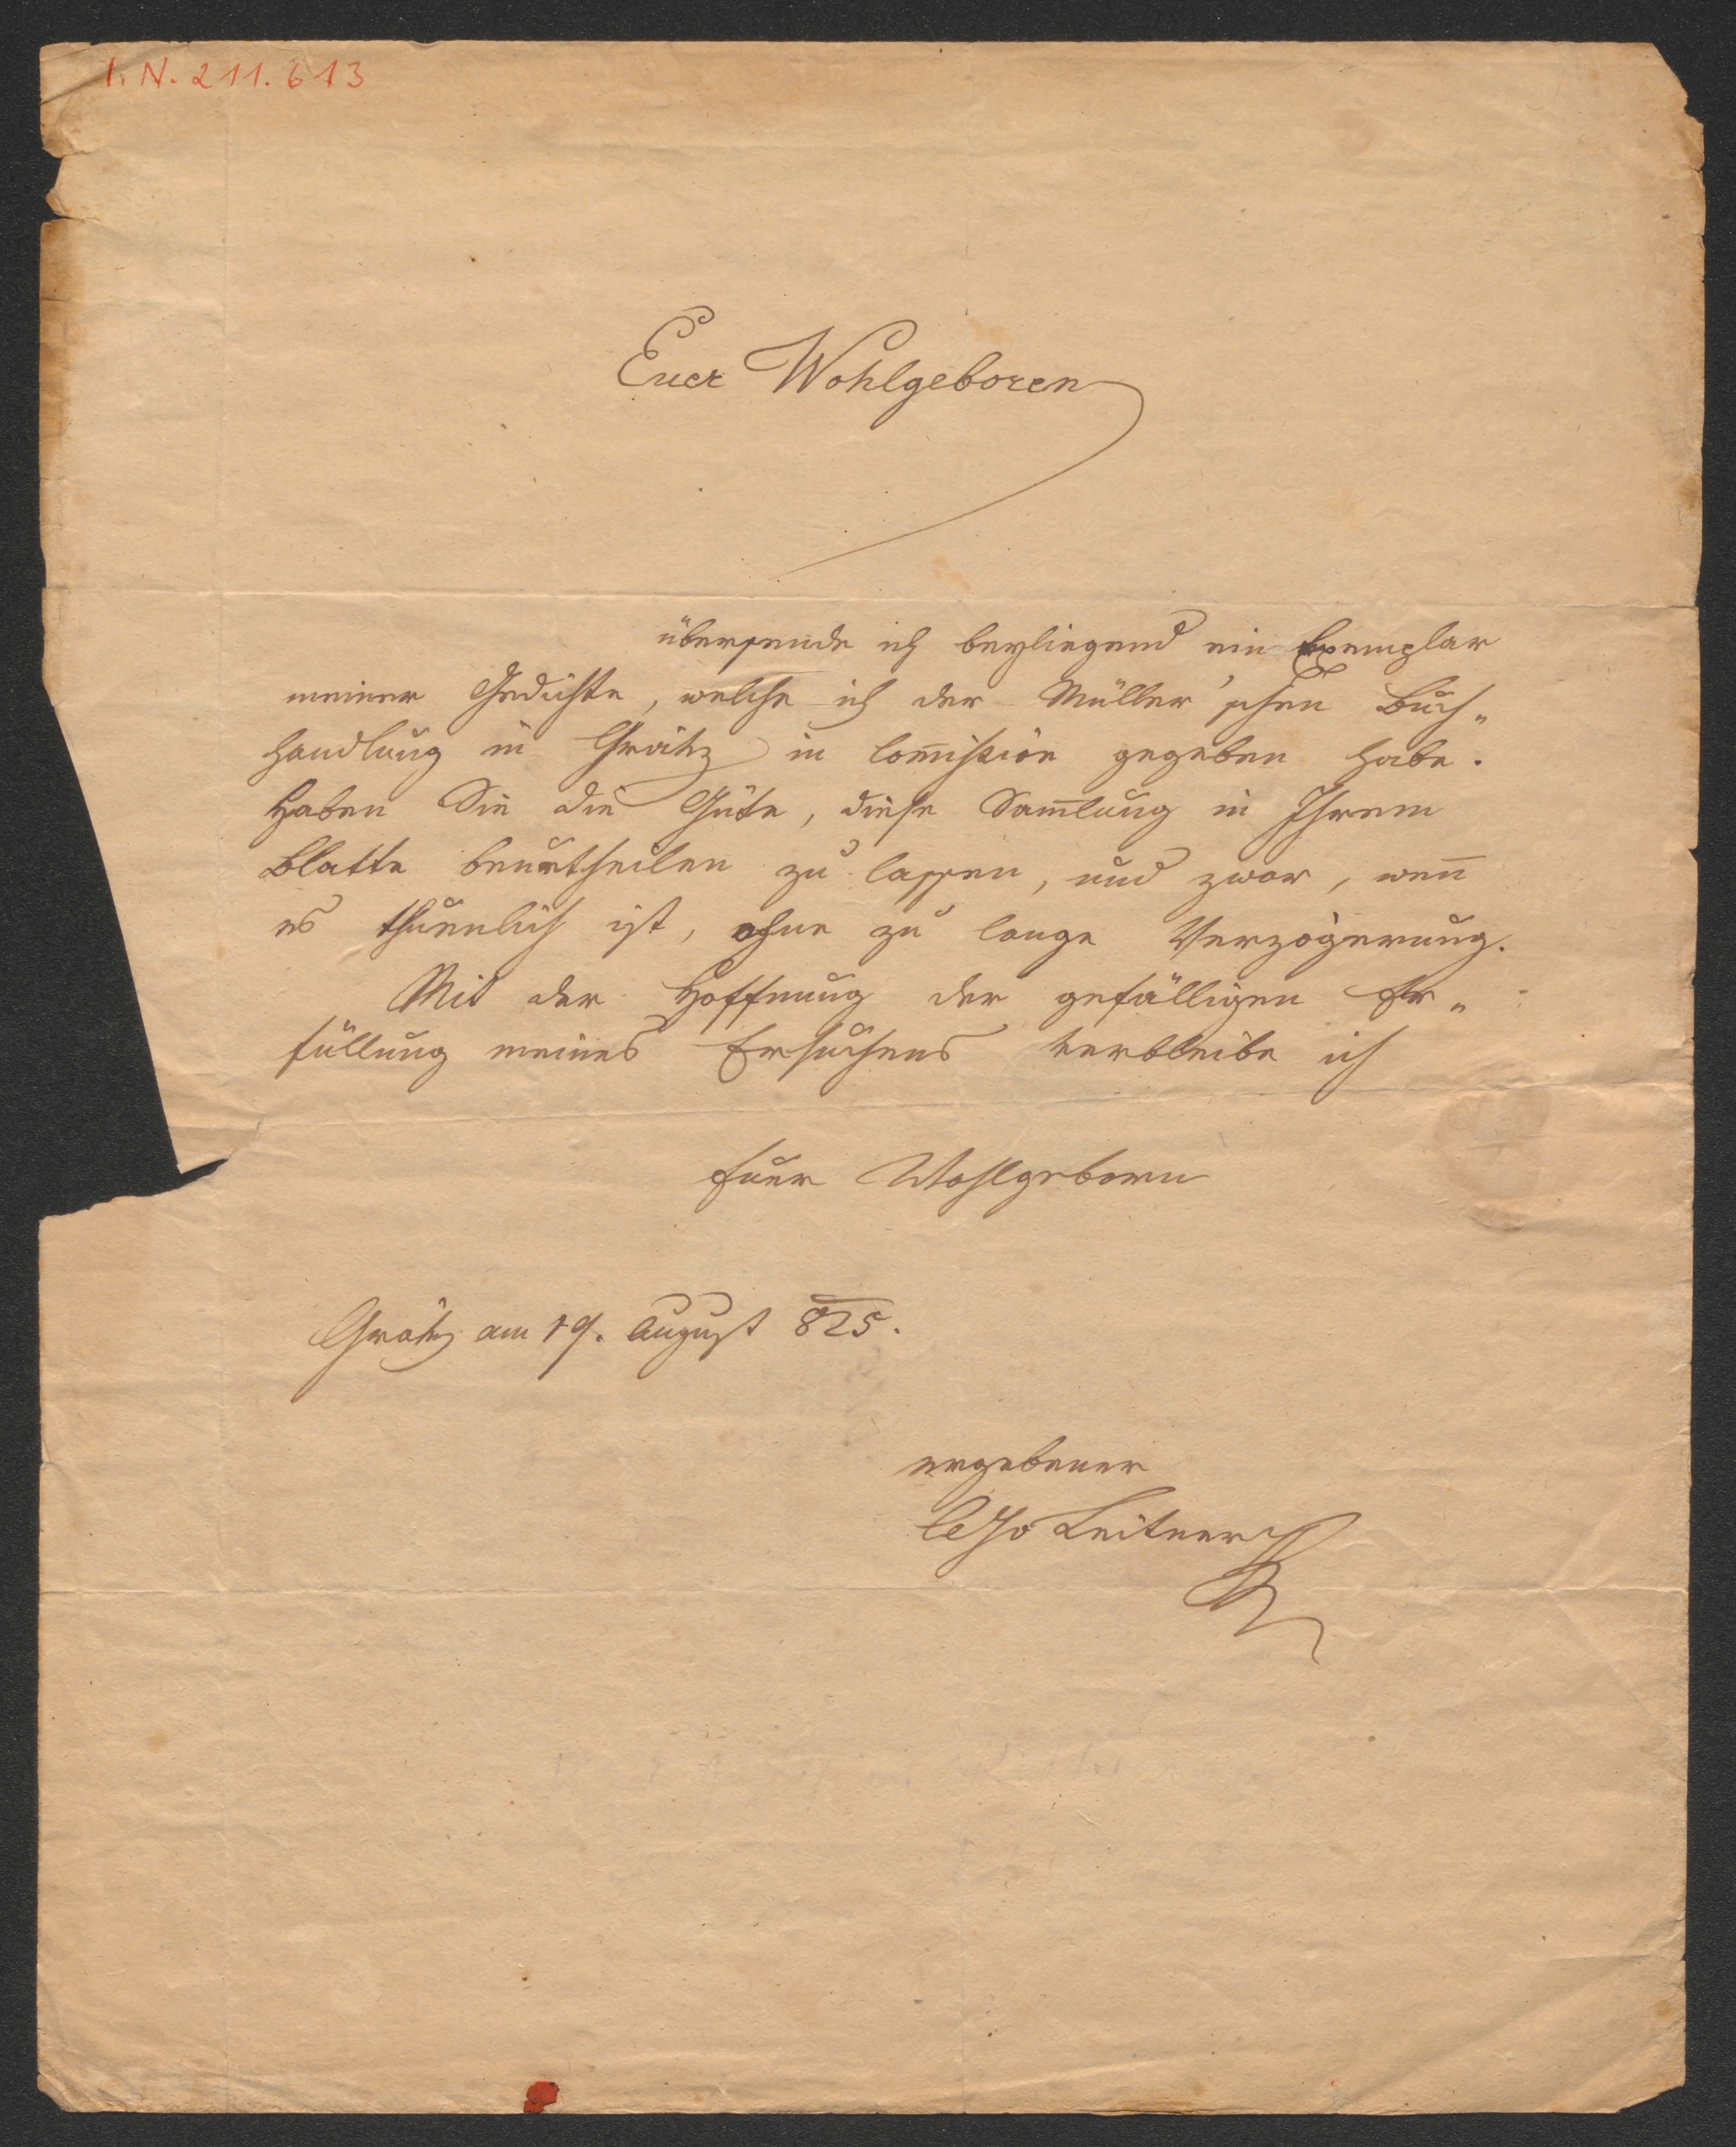 I. N. 211.613
Euer Wohlgeboren
übersende ich beyliegend ein Exemplar
meiner Gedichte, welche ich der Müller'schen Buch„
handlung in Grätz in Com̅ission gegeben habe.
Haben Sie die Güte, diese Sam̅lung in Ihrem
Blatte beurtheilen zu lassen, und zwar, wen̅
es thuenlich ist, ohne zu lange Verzögerung.
Mit der Hoffnung der gefälligen Er„
füllung meines Ersuchens verbleibe ich
Euer Wohlgeborn
Grätz am 19. August 825.
ergebener
Leitner